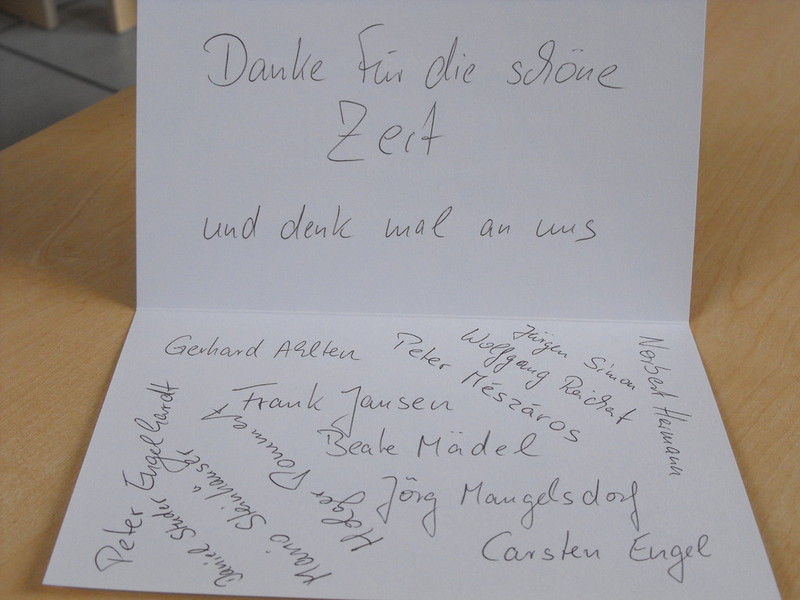 Danke für die schöne
Zeit
und denk mal an uns
Gerhard Ahlten
Peter Mészáros
Wolfgang Reichat
Jürgen Simon
Norbert Heimann
Frank Jansen
Beate Mädel
Jörg Mangelsdorf
Carsten Engel
Holger Pommert
Mario Steinhäuser
Daniel Studer
Peter Engelhardt